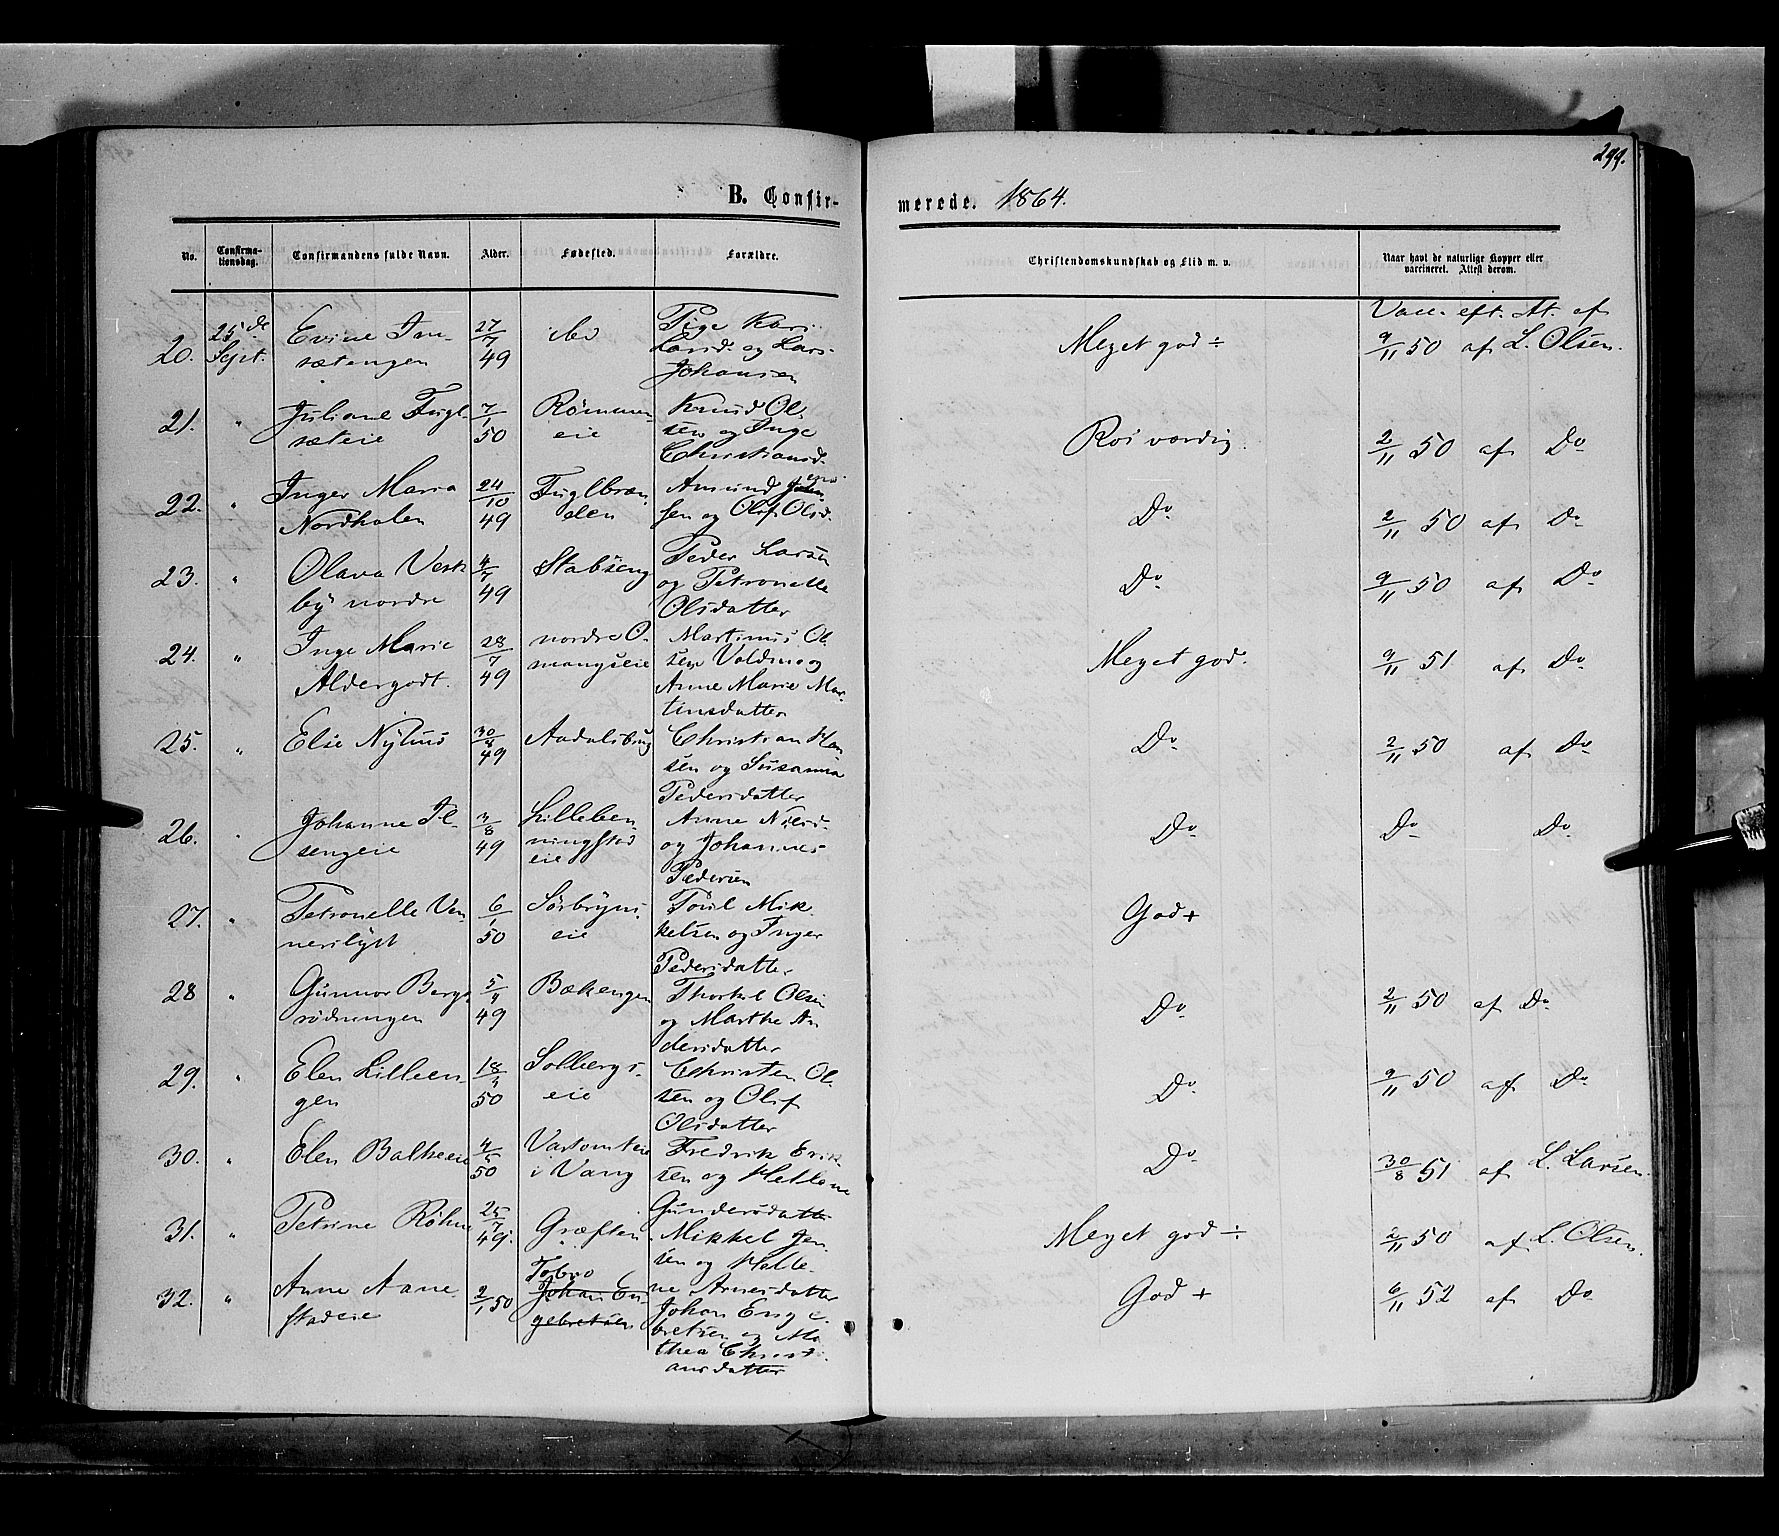 299.
B. Confir-
merede. 1864.
No.
Confirma-
tionsdag.
Confirmandens fulde Navn.
Alder.
Fødested.
Forældre.
Christendomskundskab og Flid m. v.
Naar havt de naturlige Kopper eller
vaccineret. Attest derom.
20. 25de Sept.
Evine
sætengen
27/7 49
ibd
Pige Kari
Larsd. og Lars
Johansen
Meget god ÷
Vacc. eft. At. af
9/11 50 af L. Olsen.
21. "
Juliane Fugl-
sæteie
7/1 50
Rømmen
eie
Knud Ol-
sen og Inge
Christiansd.
Rosværdig.
2/11 50 af Do
22. "
Inger Maria
Nordhalen
24/10 49
Fuglbræn
den
Amund
sen og Olif Olsd.
Do
2/11 50 af Do
23. "
Olava Vestt
by nordre
4/7 49
Stabseng
Peder Larsen
og Petronelle
Olsdatter
Do
9/11 50 af Do
24. "
Inge Marie
Aldergodt.
28/7 49
nordre O-
mangseie
Martinus Ol
sen Voldmo og
Anne Marie Mar-
tinsdatter
Meget god.
9/11 51 af Do
25. "
Else Nyhus
30/8 49
Aadalsbrug
Christian Han
sen og Susanna
Pedersdatter
Do
2/11 50 af Do
26. "
Johanne Il-
sengeie
3/8 49
Lilleben
ningstad
eie
Anne Nilsd.
og Johannes
Pedersen
Do
Do Do
27. "
Petronelle Ven-
nerslyst
6/1 50
Sørbryns
eie
Poul Mik
kelsen og Inger
Pedersdatter
God +
28 "
Gunnor Bergs
rødningen
5/9 49
Bækengen
Thorkel Olsen
og Marthe An
dersdatter
Do
2/11 50 af Do
29. "
Elen Lilleen-
gen
18/3 50
Solbergs-
eie
Christen Ol-
sen og Olif
Olsdatter
Do
9/11 50 af Do
30. "
Elen Balkeeie
4/5 50
i Vang
Fredrik Erik
sen og Hellene
Gundersdatter
Do
30/8 51 af L. Larsen.
31. "
Petrine Røhn
25/7 49.
Græften
Mikkel Jen-
sen og Helle-
ne Arnesdatter
Meget god ÷
2/11 50 af L. Olsen.
32. "
Anne Aane
stadeie
2/1 50
Tobro
Johan En
gebretsen
Johan Enge
bretsen og Ma
thea Christi
ansdatter
God +
6/11 52 af Do